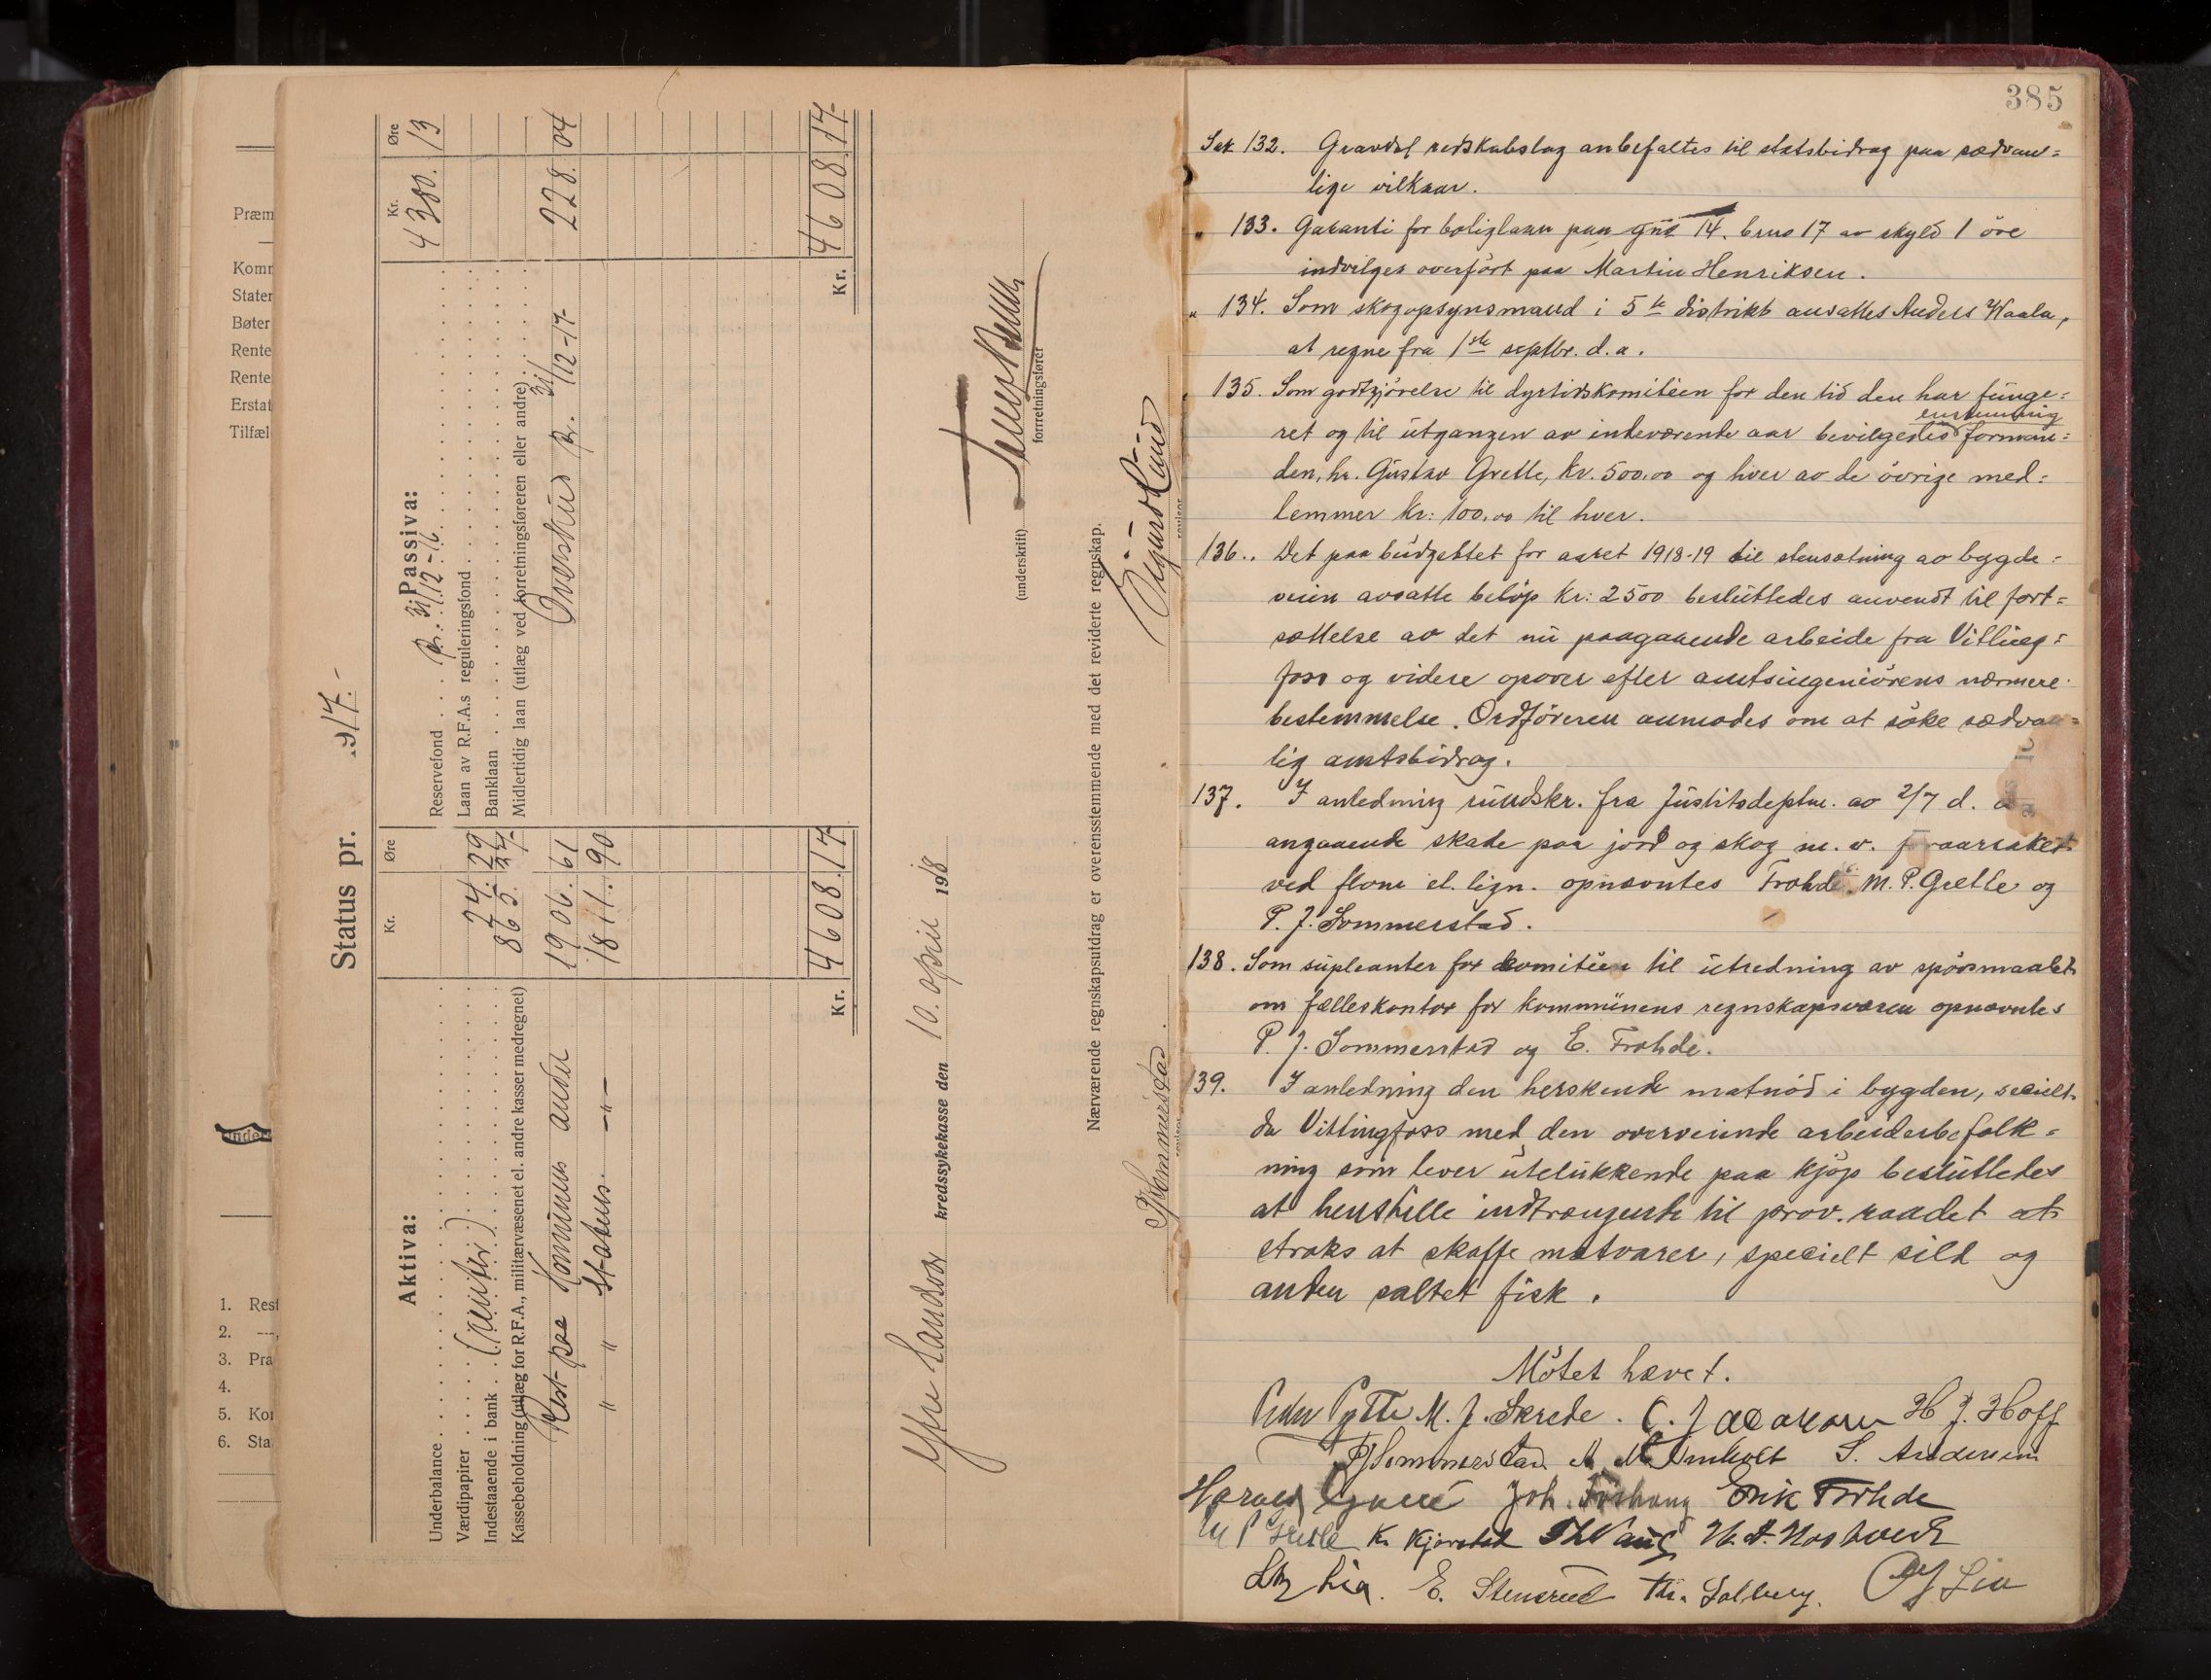 Præm
Komr
Stater
Bøter
Rente
Rente
Erstat
Tilfæl
1. Rest
2. —„
3. Pra
4.
5. Kor
6. Sta
Status pr. 1917.-
Aktiva:
Kr. Øre
Underbalance
Værdipapirer
Indestaaende i bank (renter) 74. 29
Kassebeholdning (utlæg for R.F.A., militærvæsenet el. andre kasser medregnet) 865.
Rest paa Kommunens andel 1906. 61
" " Statens —"— 1811. 90
Kr. 4608. 17
Passiva: pr. 31/12-16
Kr. Øre
Reservefond 4380. 13
Laan av R.F.A.s reguleringsfond
Banklaan
Midlertidig laan (utlæg ved forretningsføreren eller andre)
Overskud pr. 31/12-17- 228. 04
Kr. 4608. 17-
Ytre Sandsvær kredssykekasse den 10. april 1918
(underskrift)
forretningsfører
Nærværende regnskapsutdrag er overensstemmende med det reviderte regnskap.
PJSommerstad. Sigurd Lund
385
Sak 132. Gravdal redskabslag anbefaltes til statsbidrag paa sædvan=
lige vilkaar.
" 133. Garanti for boliglaan paa gno 14. bruno 17 av skyld 1 öre
indvilges overfört paa Martin Henriksen.
" 134. Som skogopsynsmand i 5te distrikt ansattes Anders Waala,
at regne fra 1ste septbr. d.a.
" 135. Som godtgjörelse til dyrtidskomitéen for den tid den har funge=
enstemmig
ret og til utgangen av indeværende aar bevilgedes forman=
den, hr. Gustav Grette, kr. 500,00 og hver av de övrige med=
lemmer kr: 100,00 til hver.
136.. Det paa budgettet for aaret 1918-19 til stensætning av bygde=
veien avsatte belöp kr: 2500 besluttedes anvendt til fort=
sættelse av det nu paagaaende arbeide fra Vitting=
foss og videre opover efter amtsingeniörens nærmere
bestemmelse. Ordföreren anmodes om at söke sædvan=
lig amtsbidrag.
137. I anledning rundskr. fra Justitsdeptm. av 2/7 d. a
angaaende skade paa jord og skog m. v. foraarsaket
ved flom el. lign. opnævntes Frohde. M. P. Grette og
P. J. Sommerstad.
138. Som supleanter for komitéen til utredning av spörsmaalet
om fælleskontor for kommunens regnskapsvæsen opnævntes
P. J. Sommerstad og E. Frohde.
139. I anledning den herskende matnöd i bygden, secielt
da Vittingfoss med den overveiende arbeiderbefolk=
ning som lever utelukkende paa kjöp besluttedes
at henstille indtrængende til prov. raadet at
straks at skaffe matvarer, specielt sild og
anden saltet fisk.
Mötet hævet.
Peder Pytte M. J. Skrede. C. Jacobsen H J. Hoff
PJSommerstad. A. M. Omholt S. Andersen
Harald Joh. Erik Frohde
M P Grette K. Kjørstad H. A.
Lia. E. Stensrud Th. Solberg. Lia